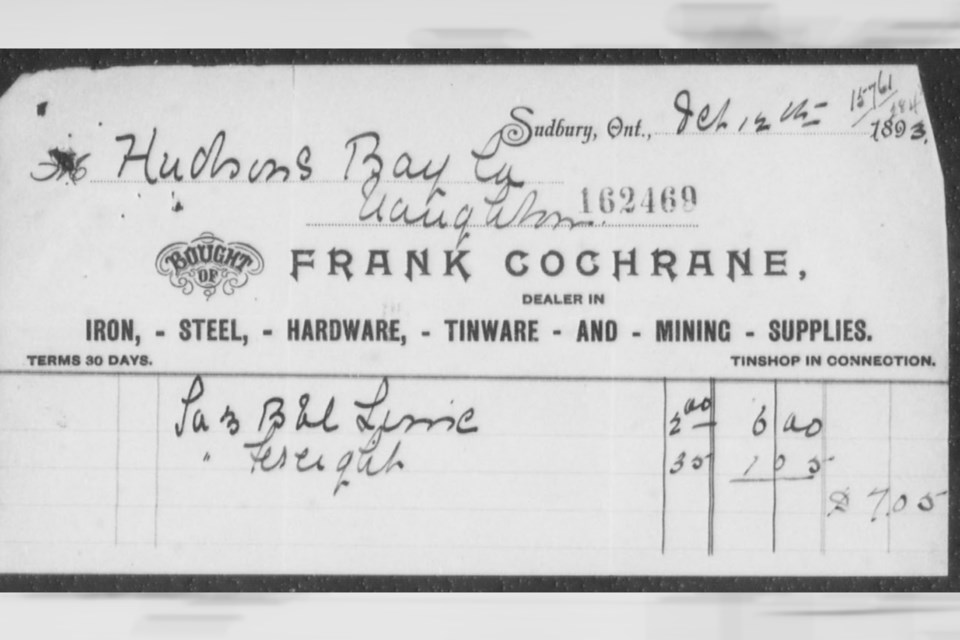 15761
Sudbury, Ont., Oct 12th 1893.
Hudsons Bay Co
Naughton 162469
BOUGHT OF FRANK COCHRANE,
DEALER IN
IRON, - STEEL, - HARDWARE, - TINWARE - AND - MINING - SUPPLIES.
TERMS 30 DAYS. TINSHOP IN CONNECTION.
To 3 Bbl Lime 2 00 6 00
" Freight 35 1 05
$ 7.05